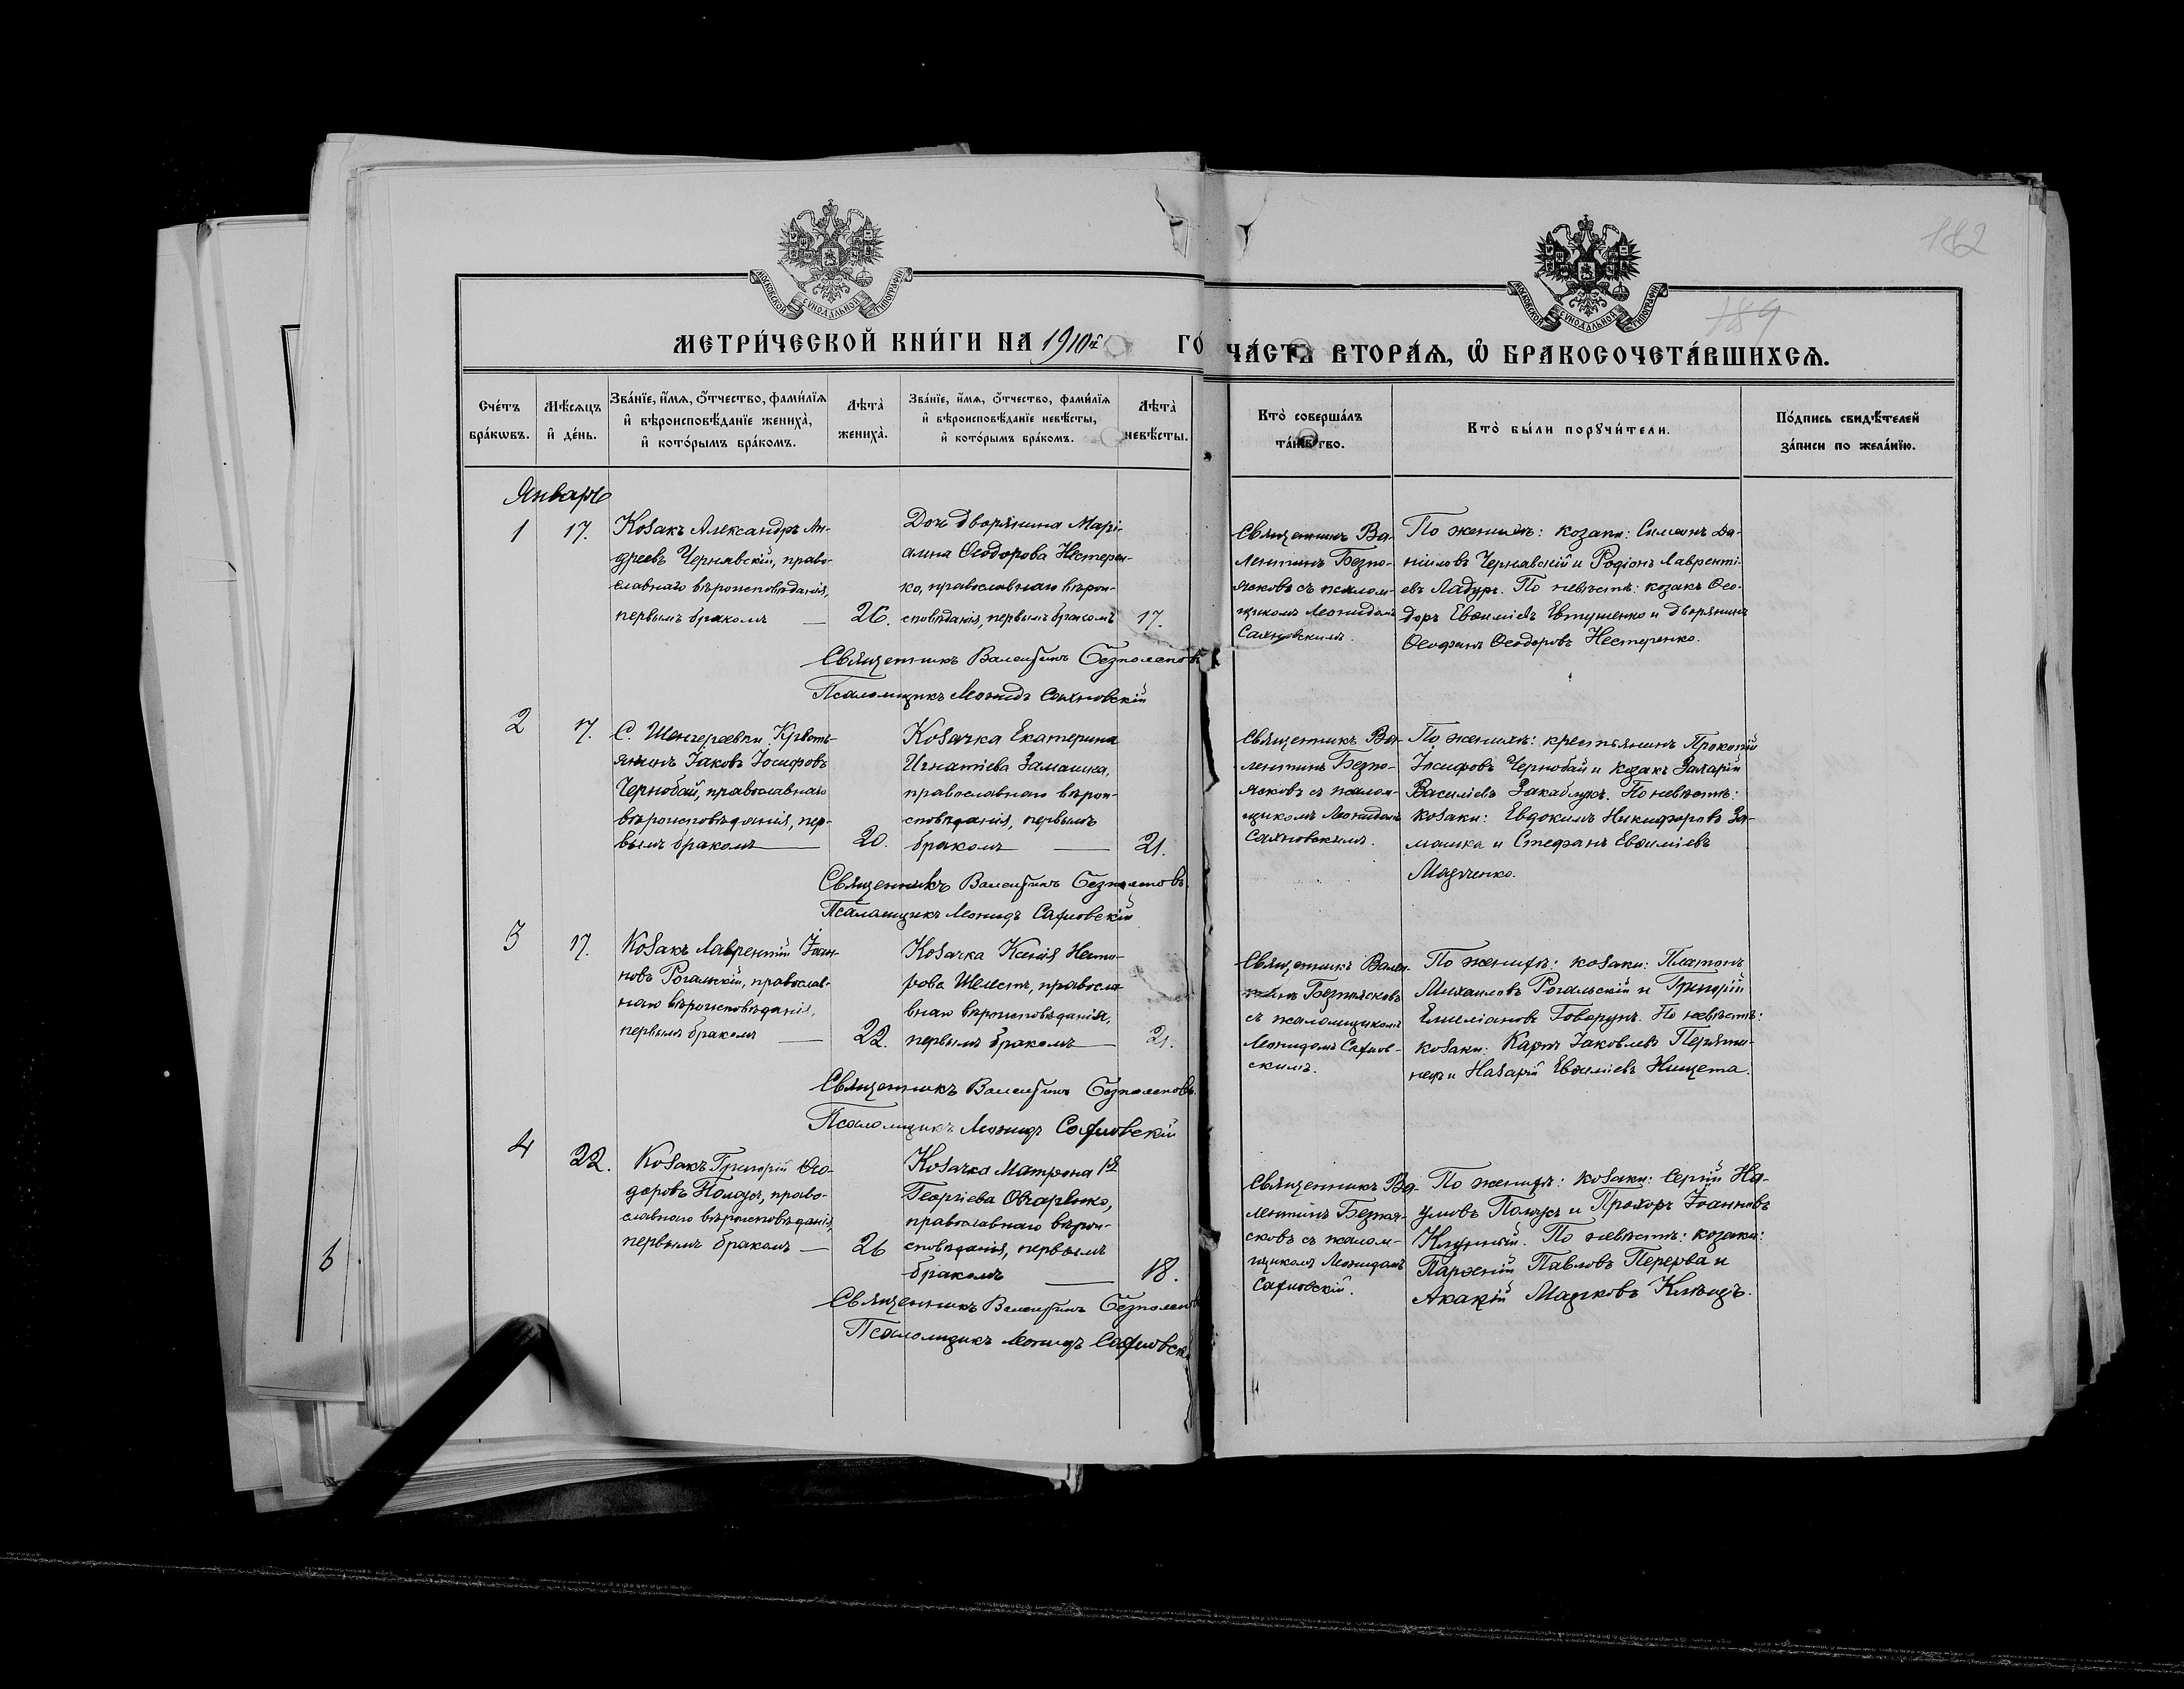 182
189
МОСКОВСКОЙ СѴНОДАЛЬНОЙ ТИПОГРАФІИ
МОСКОВСКОЙ СѴНОДАЛЬНОЙ ТИПОГРАФІИ
МЕТРИ́ЧЕСКОЙ КНИ́ГИ НА 1910й ГО́
ЧА́СТЬ ВТОРА́Ѧ, Ѡ҆ БРАКОСОЧЕТА́ВШИХСѦ.
Сче́тъ бра́кѡвъ.
Мѣ́сѧцъ и҆ де́нь.
Зва́нїе, и҆́мѧ, ѻ҆́тчество, фами́лїѧ
и҆ вѣроисповѣ́данїе жениха̀,
и҆ кото́рымъ бра́комъ.
Лѣта̀ жениха̀.
Зва́нїе, и҆́мѧ, ѻ҆́тчество, фами́лїѧ
и҆ вѣроисповѣ́данїе невѣ́сты,
и҆ кото́рымъ бра́комъ.
Лѣта̀ невѣ́сты.
Кто̀ соверша́лъ
та́инство.
Кто̀ бы́ли порꙋчи́тели.
По́дпись свидѣ́телей
за́писи по жела́нїю.
Январь
1
17.
Козакъ Александръ Ан-
дреевъ Чернявскій, право-
славнаго вѣроисповѣданія,
первымъ бракомъ —
26.
Дочь дворянина Марі-
анна Ѳеодорова Нестерен-
ко, православнаго вѣрои-
сповѣданія, первымъ бракомъ
17.
Священникъ Ва-
лентинъ Безпо-
ясковъ съ псалом-
щикомъ Леонидомъ
Сахновскимъ.
По женихѣ: козаки: Симеонъ Да-
ніиловъ Чернявскій и Родіонъ Лавренті-
евъ Ладуръ. По невѣстѣ: козакъ Ѳео-
доръ Евѳиміевъ Евтушенко и дворянинъ
Ѳеофанъ Ѳеодоровъ Нестеренко.
Священникъ Валентинъ Безпоясковъ
Псаломщикъ Леонидъ Сахновскій
2
17.
С. Шенгереевки Кресть-
янинъ Іаковъ Іосифовъ
Чернобай, православнаго
вѣроисповѣданія, пер-
вымъ бракомъ —
20.
Козачка Екатерина
Игнатіева Замашка,
православнаго вѣрои-
сповѣданія, первымъ
бракомъ —
21.
Священникъ Ва-
лентинъ Безпо-
ясковъ съ псалом-
щикомъ Леонидомъ
Сахновскимъ.
По женихѣ: крестьянинъ Прокопій
Іосифовъ Чернобай и козакъ Захарій
Василіевъ Закаблукъ. По невѣстѣ:
козаки: Евдокимъ Никифоровъ За-
машка и Стефанъ Евѳиміевъ
Священникъ Валентинъ Безпоясковъ.
Псаломщикъ Леонидъ Сахновскій
3
17.
Козакъ Лаврентій Іоан-
новъ Рогальскій, православ-
наго вѣроисповѣданія,
первымъ бракомъ —
22.
Козачка Ксенія Несто-
рова Шелестъ, правосла-
внаго вѣроисповѣданія,
первымъ бракомъ —
21.
Священникъ Вален-
тинъ Безпоясковъ
съ псаломщикомъ
Леонидомъ Сахнов-
скимъ.
По женихѣ: козаки: Платонъ
Михаиловъ Рогальскій и Григорій
Емеліановъ Говорунъ. По невѣстѣ:
козаки: Карпъ Іаковлевъ
и Назарій Евѳиміевъ Нищета.
Священникъ Валентинъ Безпоясковъ.
Псаломщикъ Леонидъ Сахновскій
4
22.
Козакъ Григорій Ѳео-
доровъ Полусъ, право-
славнаго вѣроисповѣданія,
первымъ бракомъ —
26
Козачка Матрона
Георгіева Овчаренко,
православнаго вѣрои-
сповѣданія, первымъ
бракомъ —
18.
Священникъ Ва-
лентинъ Безпоя-
сковъ съ псалом-
щикомъ Леонидомъ
Сахновскій.
По женихѣ: козаки: Сергій На-
умовъ Полусъ и Прохоръ Іоанновъ
По невѣстѣ: козаки:
Парѳеній Павловъ Перерва и
Акакій
Священникъ Валентинъ Безпоясковъ
Псаломщикъ Леонидъ Сахновскій
6